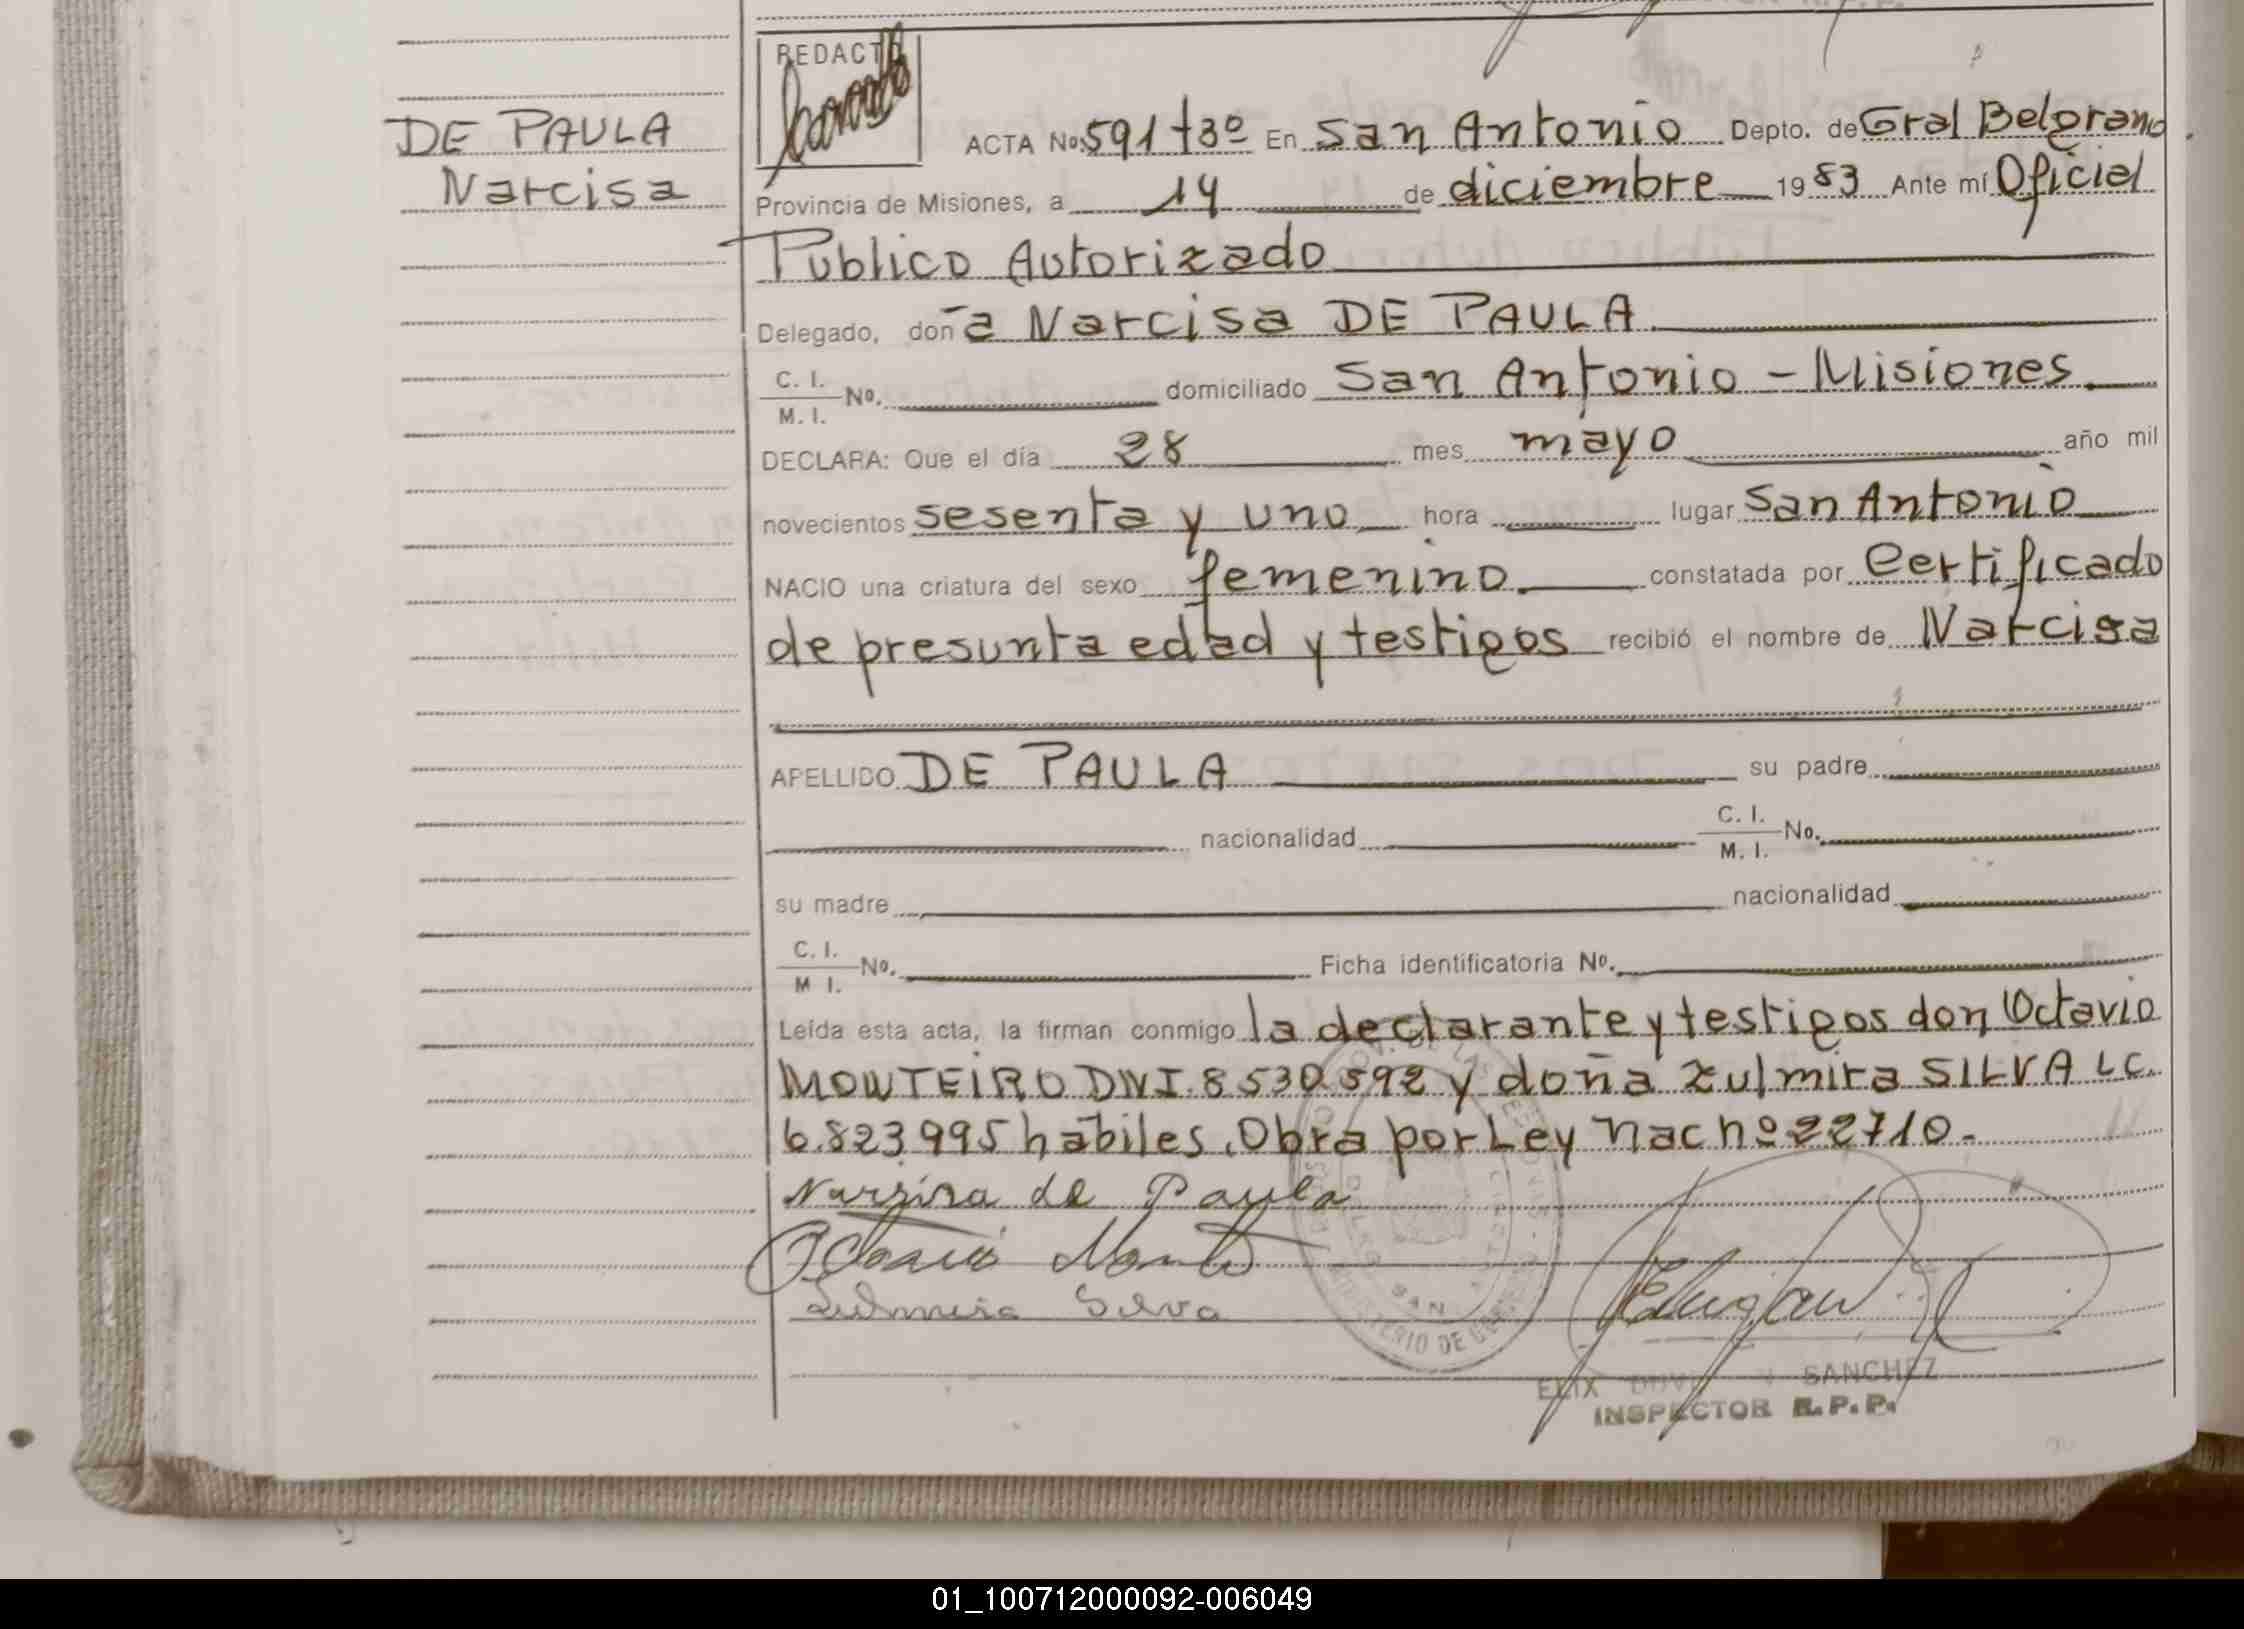 REDACTO
DE PAULA
Narcisa
ACTA No. 591 tº3º En San Antonio Depto. de Gral Belgrano
Provincia de Misiones, a 14 de diciembre 1983 Ante mí Oficial
Publico Autorizado
Delegado, doña Narcisa DE PAULA
C. I.
M. I. No. domiciliado San Antonio - Misiones
DECLARA: Que el día 28 mes mayo año mil
novecientos sesenta y uno hora lugar San Antonio
NACIO una criatura del sexo femenino. constatada por Certificado
de presunta edad y testigos recibió el nombre de Narcisa
APELLIDO DE PAULA su padre
nacionalidad C. I.
M. I. No.
su madre nacionalidad
C. I.
M I. No. Ficha identificatoria No.
Leída esta acta, la firman conmigo la declarante y testigos don Octavio
MONTEIRO DNI. 8530592 y doña Zulmira SILVA LC.
6.823.995 habiles. Obra por Ley Nac nº 22710.-
Narzisa de Paula
Octavio
Silva
SANCHEZ
INSPECTOR R.P.P.
01_100712000092-006049